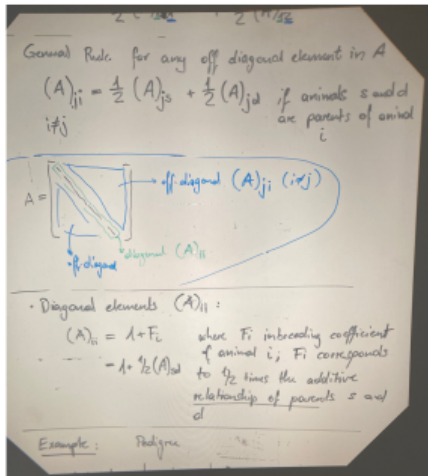 General Rule: for any off diagonal element in A
(A)ji = 1/2 (A)js + 1/2 (A)jd if animals s and d
i≠j are parents of animal
i
off-diagonal (A)ji (i≠j)
A =
diagonal (A)ii
off-diagonal
· Diagonal elements (A)ii :
(A)ii = 1 + Fi where Fi inbreeding coefficient
= 1 + 1/2 (A)sd of animal i; Fi corresponds
to 1/2 times the additive
relationship of parents s and
d
Example: Pedigree